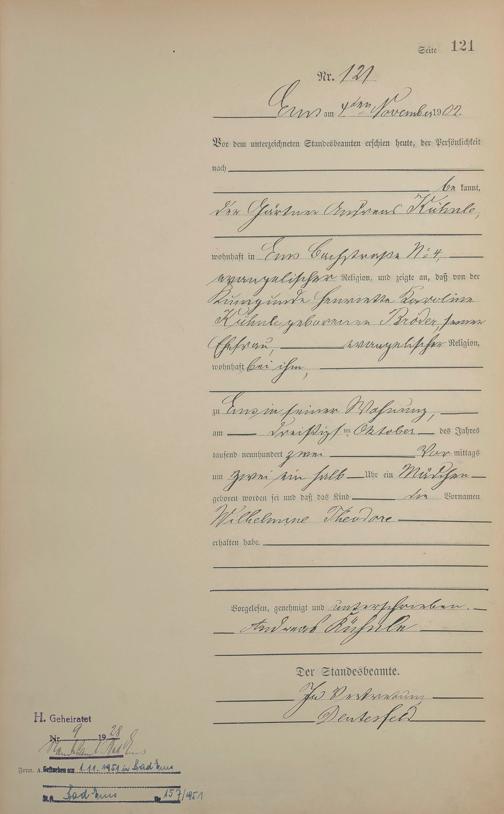 Seite 121
Nr. 121
Ems am 4ten November 1902
Vor dem unterzeichneten Standesbeamten erschien heute, der Persönlichkeit
nach
be kannt,
der Gärtner Andreas Kühnle,
wohnhaft in Ems Bachstraße No 4,
evangelischer Religion, und zeigte an, daß von der
Kunigunde Henriette Karoline
Kühnle geborenen Broder, seiner
Ehefrau, evangelischer Religion,
wohnhaft bei ihm,
zu Ems in seiner Wohnung,
am dreißigsten Oktober des Jahres
tausend neunhundert zwei Vor mittags
um zwei ein halb Uhr ein Mädchen
geboren worden sei und daß das Kind die Vornamen
Wilhelmine Theodore
erhalten habe.
Vorgelesen, genehmigt und unterschrieben.
Andreas Kühnle
Der Standesbeamte.
In Vertretung
H. Geheiratet
Nr. 9 1928
Standesamt Bad Ems
Gestorben am 1.11.1951 in Bad Ems
St.A. Bad Ems Nr 157/1951